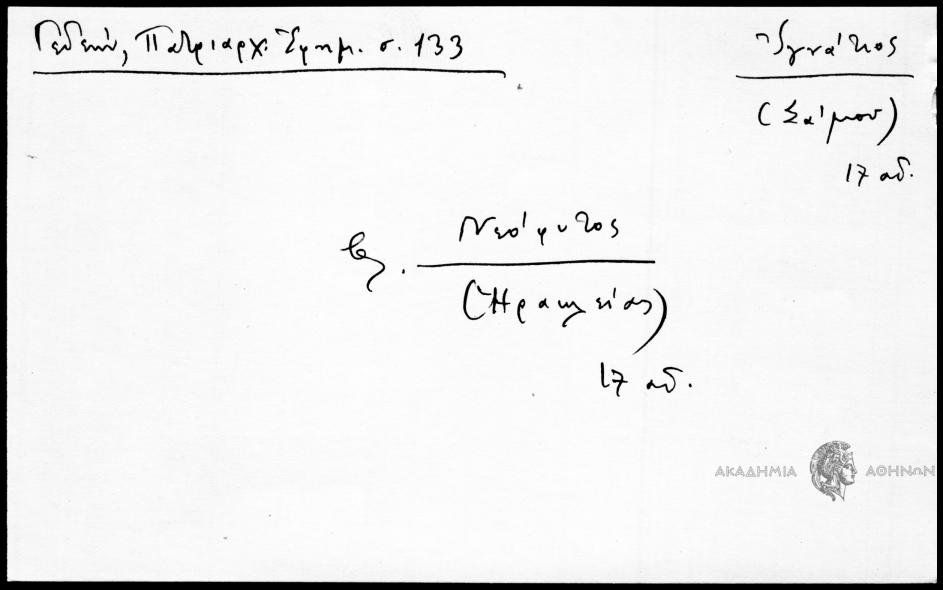 Γεδεών, Πατριαρχ. Ἐφημ. σ. 133
Ἰγνάτιος
(Σάμου)
17 αἰ.
βλ. Νεόφυτος
(Ἡρακλείας)
17 αἰ.
ΑΚΑΔΗΜΙΑ ΑΘΗΝΩΝ